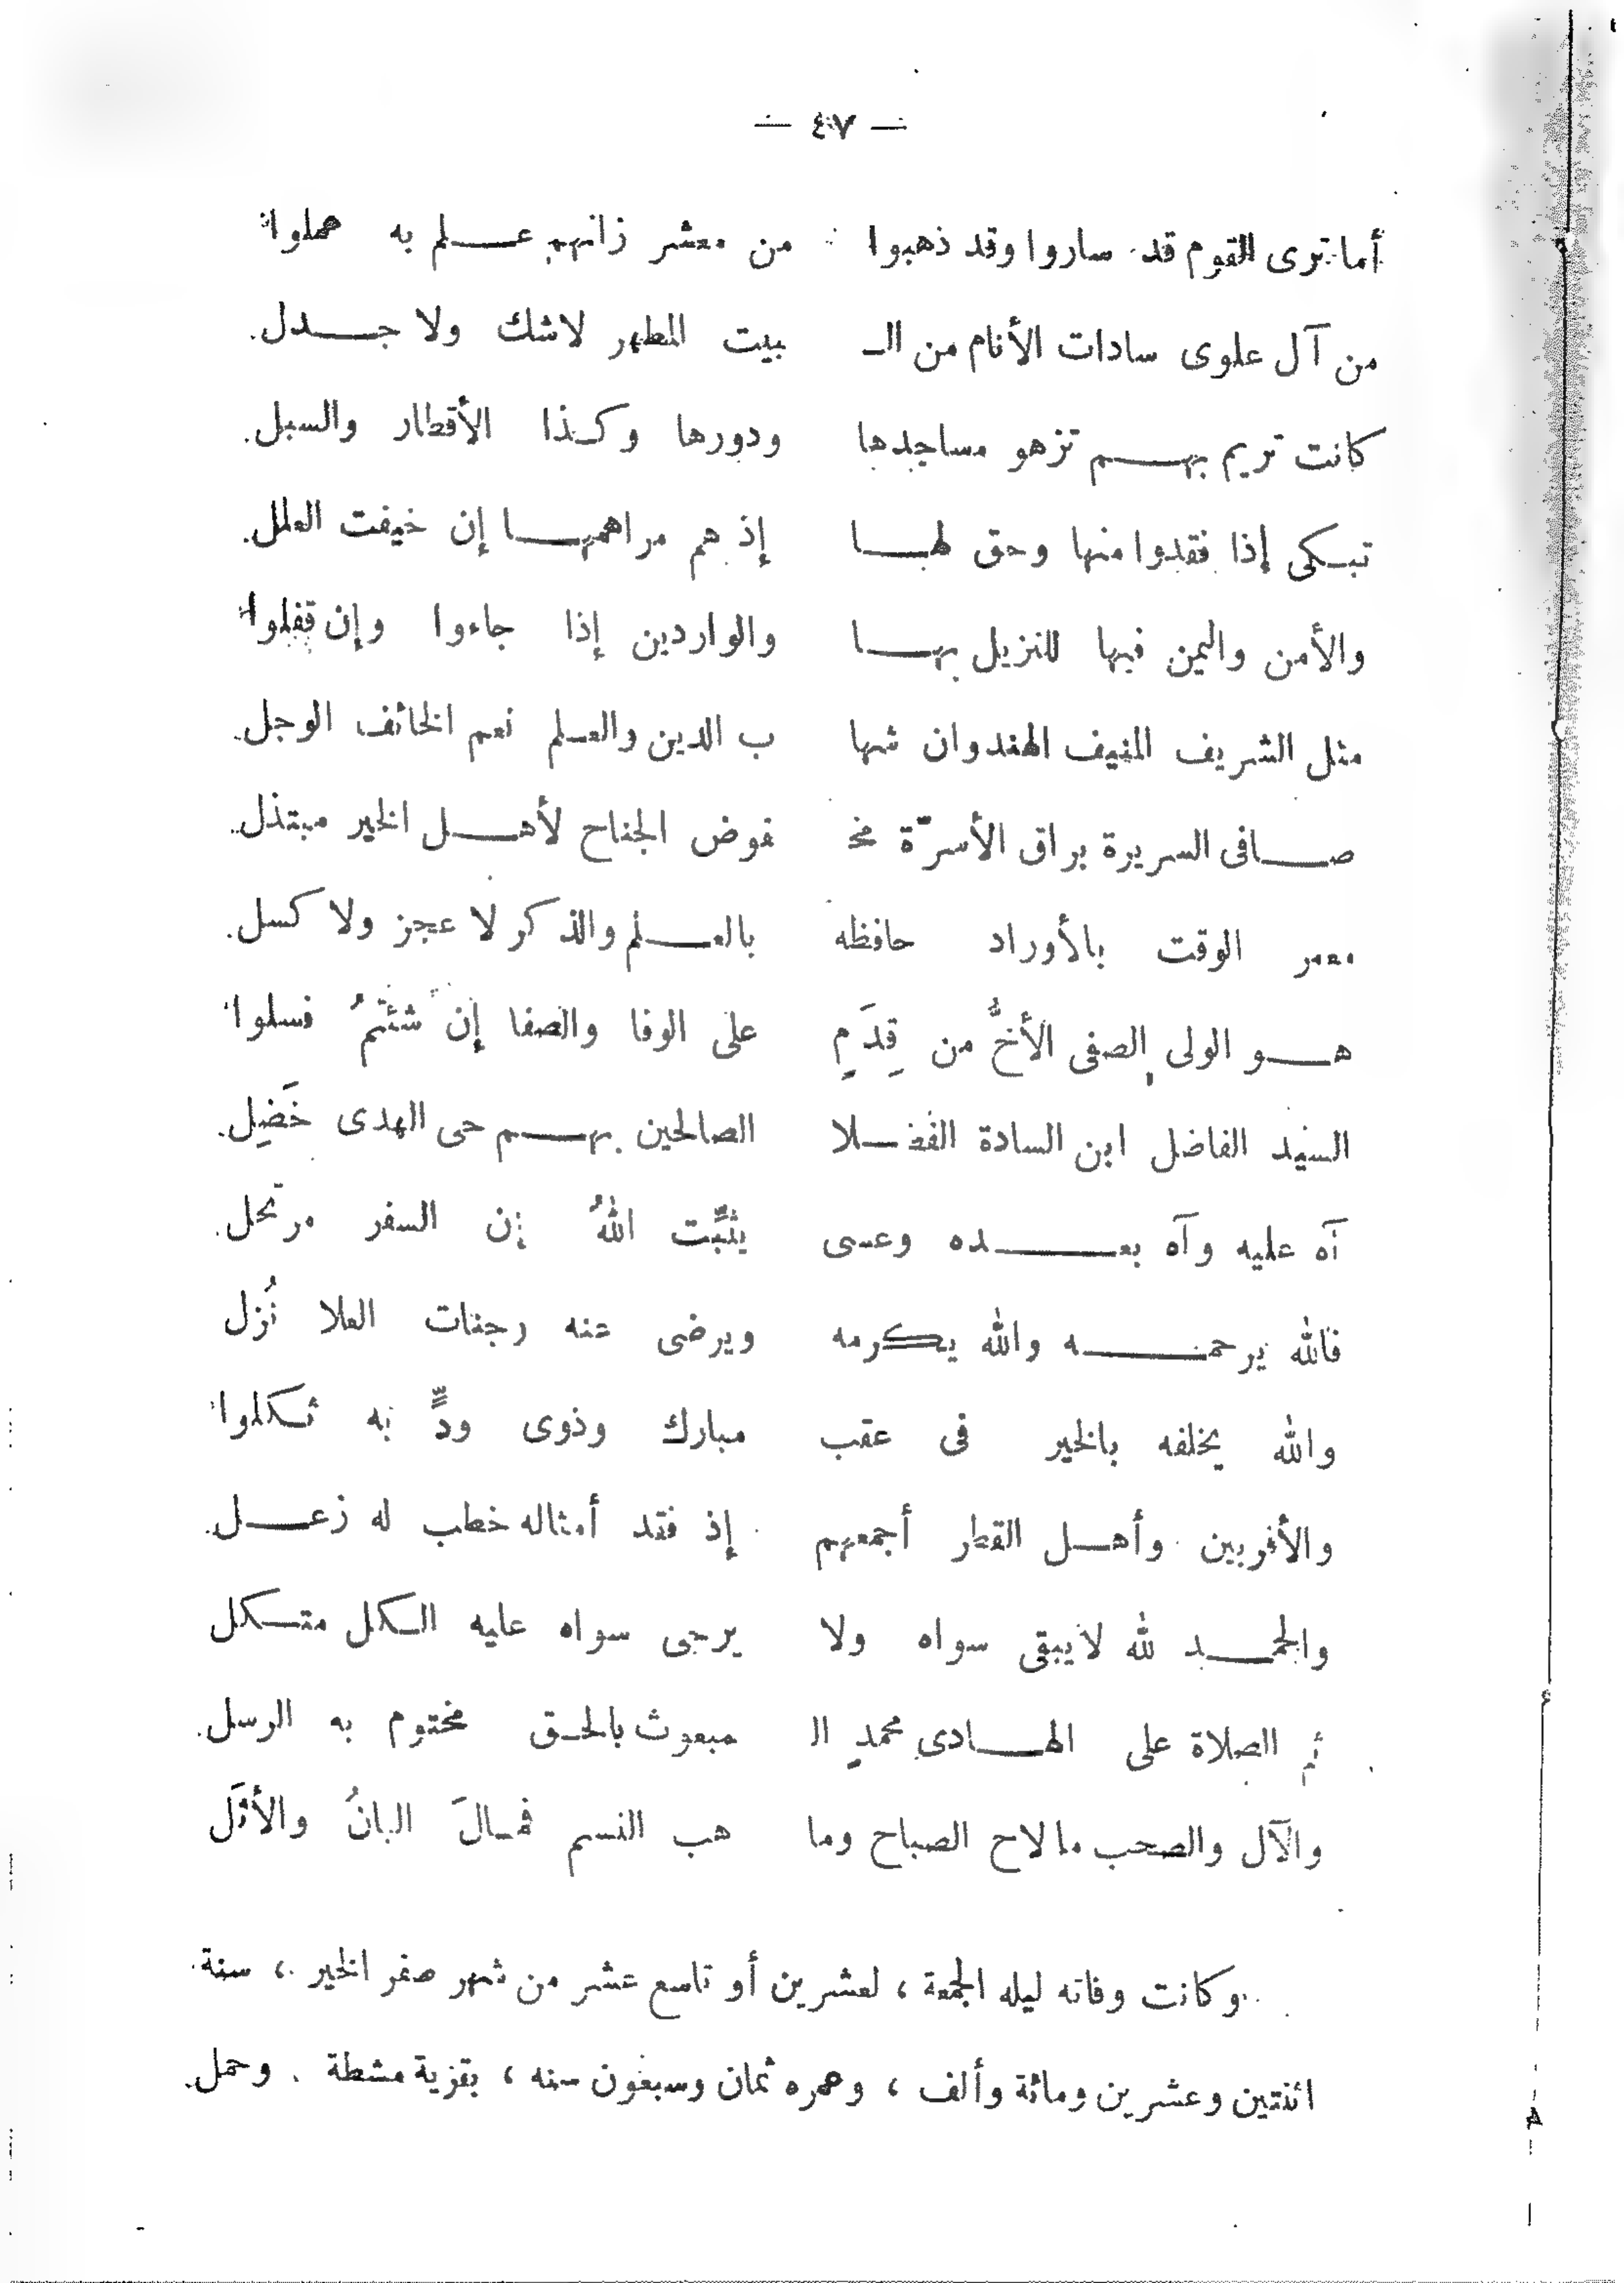 — ٤٧ —
أما ترى القوم قد ساروا وقد ذهبوا من معشر زانهم عـلم به عملوا
من آل علوى سادات الأنام من الـ بيت المطهر لاشك ولا جـدل
كانت تريم بهـم تزهو مساجدها ودورها وكـذا الأقطار والسبل
تبـكى إذا فقدوا منها وحق لهـا إذ هم مراهمهـا إن خيفت العلل
والأمن واليمن فيها للنزيل بهـا والواردين إذا جاءوا وإن قفلوا
مثل الشريف المنيف الهندوان شها ب الدين والعـلم نعم الخائف الوجل
صـافى السريرة براق الأسرّة مخـ فوض الجناح لأهـل الخير مبتذل
معمر الوقت بالأوراد حافظه بالعـلم والذكر لا عجز ولا كسل
هـو الولى الصفى الأخُّ من قِدَمٍ على الوفا والصفا إن شئتمُ فسلوا
السيد الفاضل ابن السادة الفضـلا الصالحين بهـم حى الهدى خَضِل
آه عليه وآه بعـده وعسى يثبِّت اللهُ إن السفر مرتحل
فالله يرحمـه والله يـكرمه ويرضى عنه وجنات العلا نُزل
والله يخلفه بالخير فى عقب مبارك وذوى ودٍّ به ثـكلوا
والأقربين وأهـل القطر أجمعهم إذ فقد أمثاله خطب له زعـل
والحمـد لله لا يبقى سواه ولا يرجى سواه عليه الـكل متـكل
ثم الصلاة على الهـادى محمدٍ الـ مبعوث بالحـق مختوم به الرسل
والآل والصحب ما لاح الصباح وما هب النسم فمـالَ البانُ والأثَل
وكانت وفاته ليله الجمعة ، لعشرين أو تاسع عشر من شهر صفر الخير ، سنة
اثنتين وعشرين ومائة وألف ، وعمره ثمان وسبعون سنه ، بقرية مشطة . وحمل